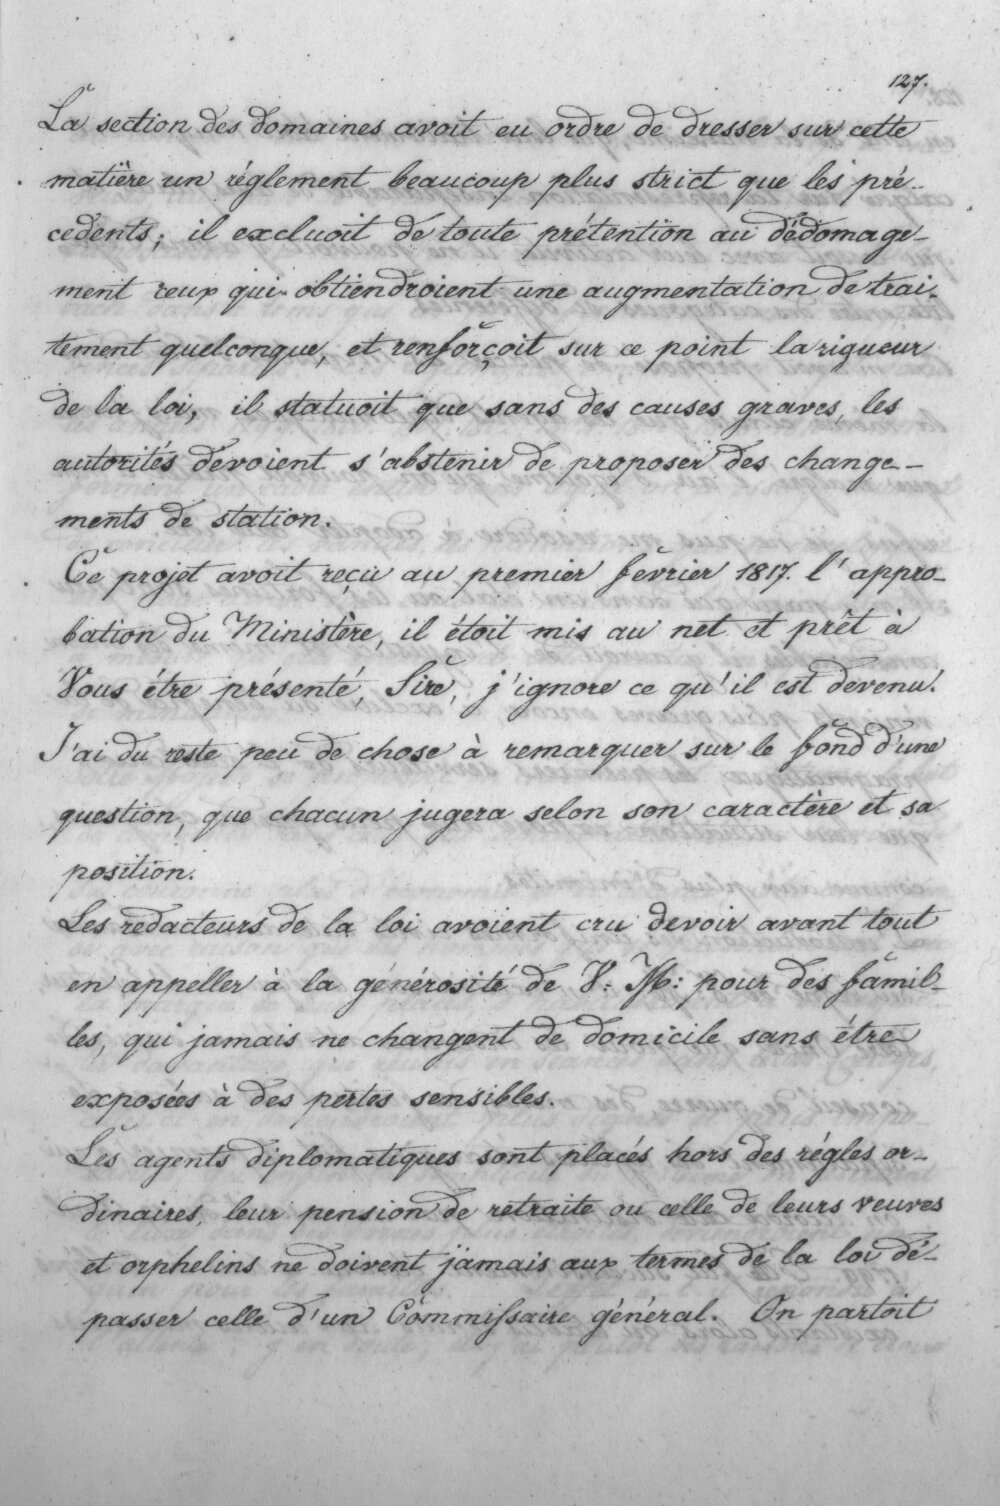 127.
La section des domaines avoit eu ordre de dresser sur cette
matière un réglement beaucoup plus strict que les pré-
cedents; il excluoit de toute prétention au dédomage-
ment ceux qui obtiendroient une augmentation de trai-
tement quelconque, et renforçoit sur ce point la rigueur
de la loi, il statuoit que sans des causes graves, les
autorités devoient s'abstenir de proposer des change-
ments de station.
Ce projet avoit reçu au premier février 1817. l'appro-
bation du Ministère, il étoit mis au net et prêt à
Vous étre présenté, Sire, j'ignore ce qu'il est devenu.
J'ai du reste peu de chose à remarquer sur le fond d'une
question, que chacun jugera selon son caractère et sa
position.
Les rédacteurs de la loi avoient cru devoir avant tout
en appeller à la générosité de V: M: pour des famil-
les, qui jamais ne changent de domicile sans étre
exposées à des pertes sensibles.
Les agents diplomatiques sont placés hors des régles or-
dinaires, leur pension de retraite ou celle de leurs veuves
et orphelins ne doivent jamais aux termes de la loi dé-
passer celle d'un Commissaire général. On partoit